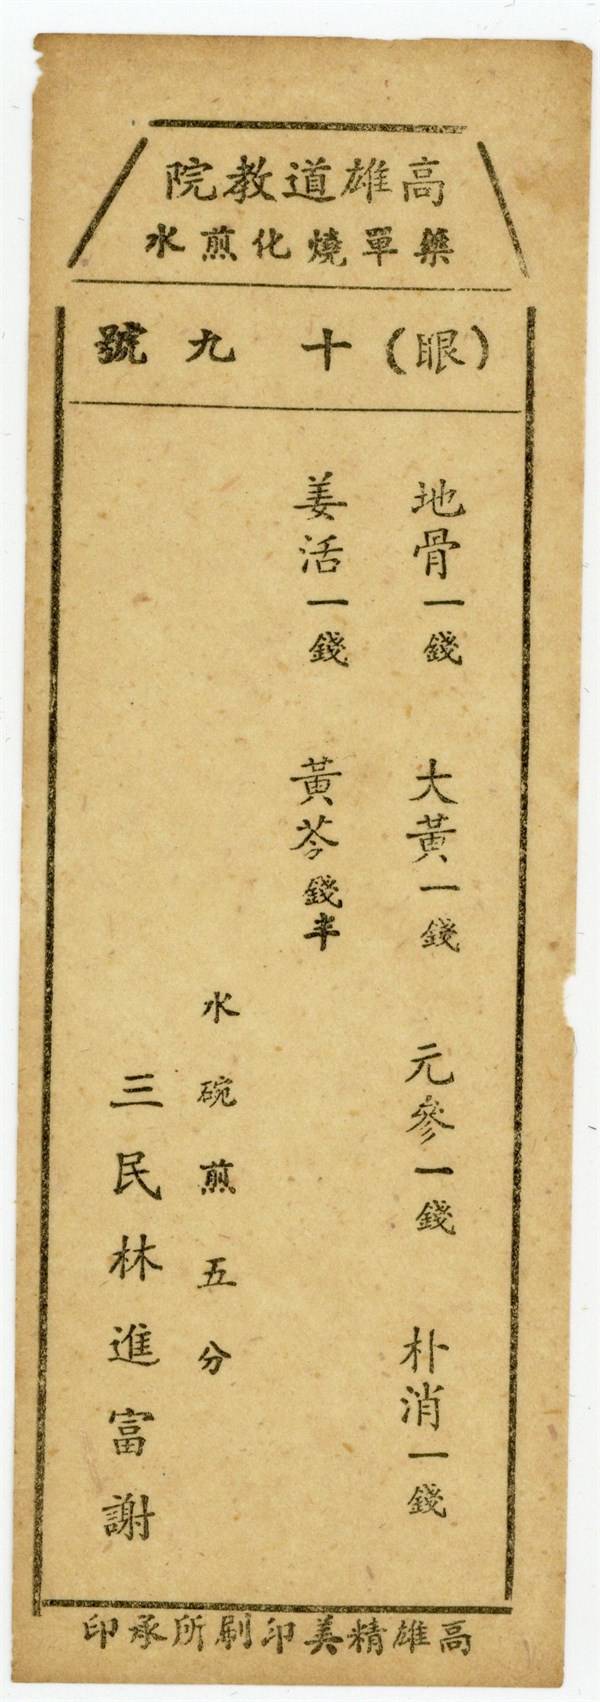 高雄道教院
藥單燒化煎水
（眼）十九號
地骨一錢 大黃一錢 元參一錢 朴消一錢
姜活一錢 黃芩錢半
水碗煎五分
三民林進富謝
高雄精美印刷所承印